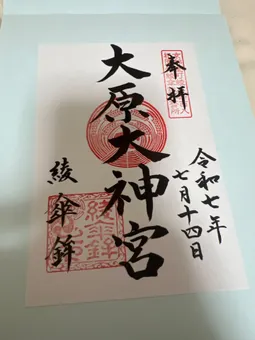 奉拝
大原大神宮
令和七年
七月十四日
綾傘鉾